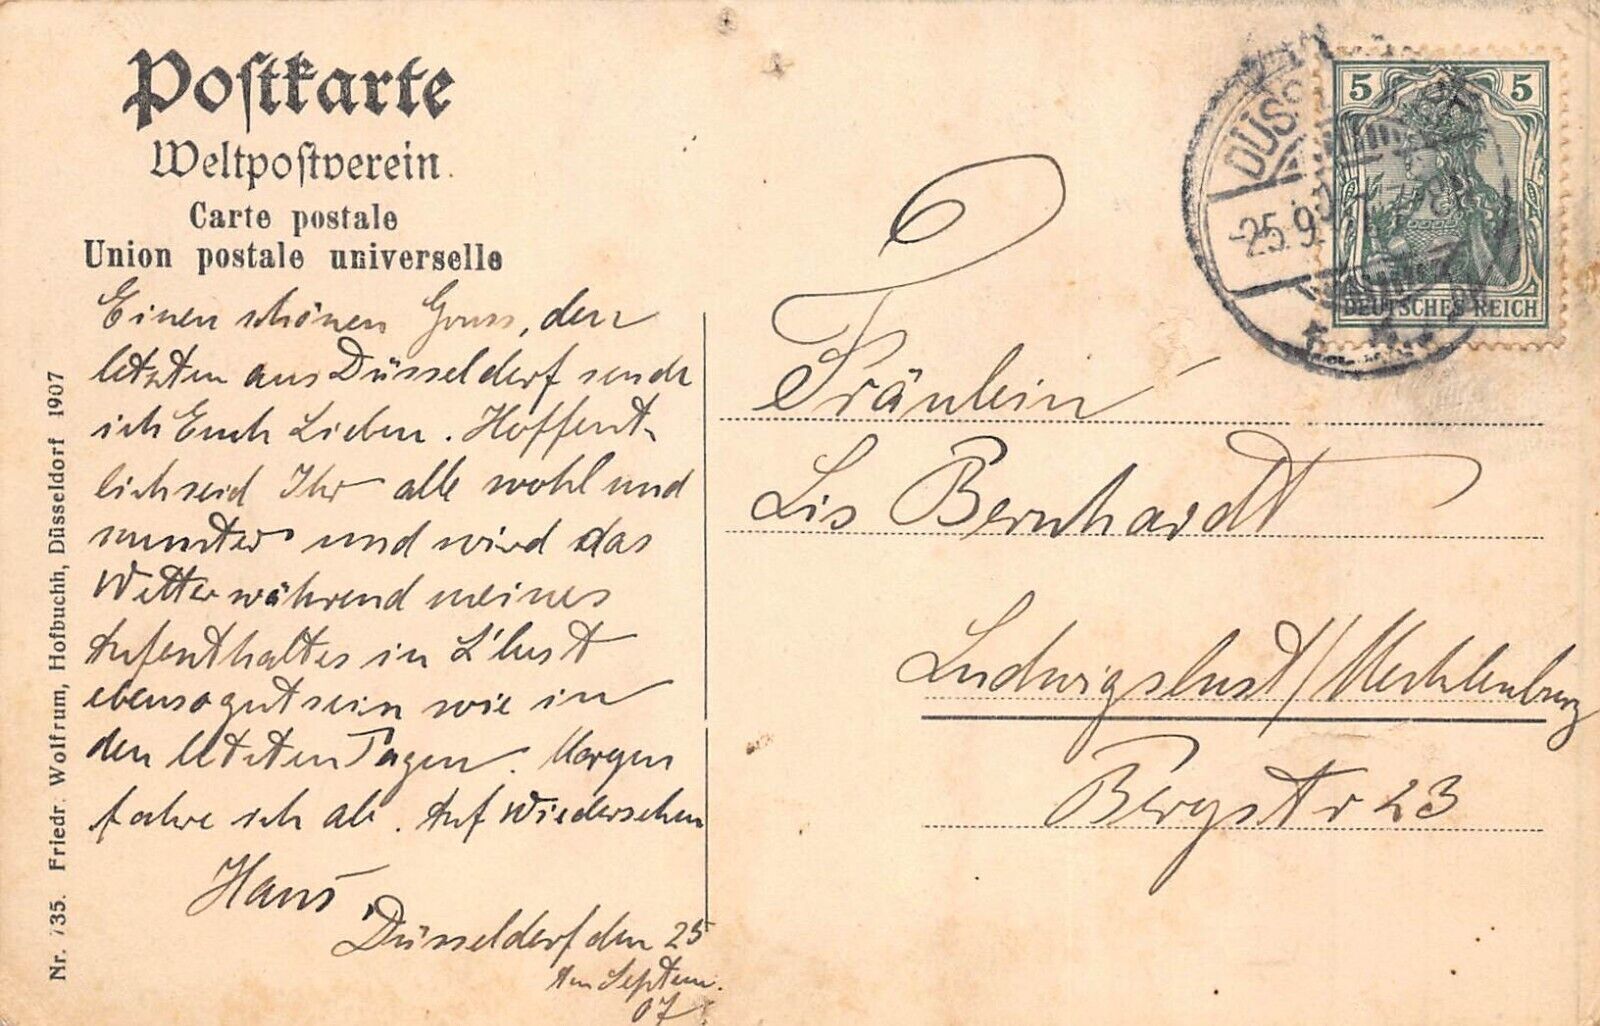 Postkarte
Weltpostverein
Carte postale
Union postale universelle
Einen schönen Gruss, den
letzten aus Düsseldorf sende
ich Euch Lieben. Hoffent-
lich seid Ihr alle wohl und
munter und wird das
Wetter während meines
Aufenthaltes in L'lust
ebenso gut sein wie in
den letzten Tagen. Morgen
fahre ich ab. Auf Wiedersehen
Hans
Düsseldorf den 25
ten Septem.
07
Nr. 735. Friedr. Wolfrum, Hofbuchh, Düsseldorf 1907
5 5
DEUTSCHES REICH
DÜSS
25.9.
Fräulein
Lis Bernhardt
Ludwigslust/Mecklenburg
Bergstr 23